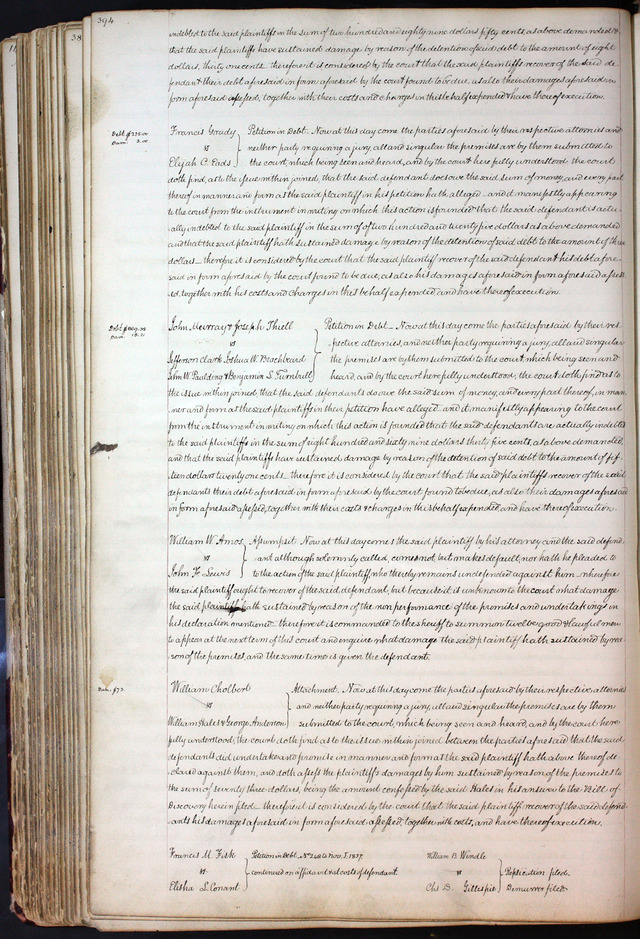 394
38
11
indebted to the said plaintiffs in the sum of two hundred and eighty nine dollars fifty cents, as above demanded &
that the said plaintiffs have sustained damage by reason of the detention of said debt to the amount of eight
dollars, thirty one cents. therefore it is considered by the court that the said plaintiffs recover of the said de-
fendant their debt aforesaid in form aforesaid by the court found to be due, as also their damages aforesaid in
form aforesaid assessed, together with their costs and charges in this behalf expended & have thereof execution.
Debt $225.00
Dam. 3.00
Francis Grady
vs
Elijah C. Eads
Petition in Debt. Now at this day come the parties aforesaid by their respective attornies and
neither party requiring a jury, all and singular the premises are by them submitted to
the court, which being seen and heard, and by the court here fully understood, the court
doth find, as to the issue within joined, that the said defendant does owe the said sum of money, and every part
thereof in manner and form as the said plaintiff in his petition hath alleged — and it manifestly appearing
to the court from the instrument in writing on which this action is founded that the said defendant is actu-
ally indebted to the said plaintiff in the sum of of two hundred and twenty five dollars as above demanded
and that the said plaintiff hath sustained damage by reason of the detention of said debt to the amount of three
dollars — therefore it is considered by the court that the said plaintiff recover of the said defendant his debt afore-
said in form aforesaid by the court found to be due, as also his damages aforesaid in form aforesaid assess-
ed, together with his costs and charges in this behalf expended, and have thereof execution.
Debt $869.35
Dam. 15.21
John Murray & Joseph Thiell
vs
Jefferson Clark, Joshua W. Brashbeard
John W. Pudding & Benjamin S. Turnbull
Petition in Debt — Now at this day come the parties aforesaid by their res-
pective attornies, and neither party requiring a jury, all and singular
the premises are by them submitted to the court which being seen and
heard, and by the court here fully understood, the court doth find as to
the issue within joined, that the said defendants do owe the said sum of money, and every part thereof, in man-
ner and form as the said plaintiffs in their petition have alleged — and it manifestly appearing to the court
form the instrument in writing on which this action is founded that the said defendants are actually indebted
to the said plaintiffs in the sum of eight hundred and sixty nine dollars thirty five cents, as above demanded,
and that the said plaintiffs have sustained damage by reason of the detention of said debt to the amount of fif-
teen dollars twenty one cents — therefore it is considered by the court that the said plaintiffs recover of the said
defendants their debt aforesaid in form aforesaid by the court found to be due, as also their damages aforesaid
in form aforesaid assessed, together with their costs & charges in this behalf expended, and have thereof execution.
William W. Amos
vs
John F. Lewis
Assumpsit. Now at this day comes the said plaintiff by his attorney and the said defend-
ant although solemnly called, comes not, but makes default, nor hath he pleaded to
to the action of the said plaintiff, who thereby remains undefended against him — wherefore
the said plaintiff ought to recover of the said defendant, but because it is unknown to the court what damage
the said plaintiff hath sustained by reason of the non performance of the premises and undertakings in
his declaration mentioned — therefore it is commanded to the sheriff to summon twelve good & lawful men
to appear at the next term of this court and enquire what damage the said plaintiff hath sustained by rea-
son of the premises, and the same time is given the defendant.
Dam. $73.
William Cholbert
vs
William Hales & George Anderson
Attachment. Now at this day come the parties aforesaid by their respective attornies
and neither party requiring a jury, all and singular the premises are by them
submitted to the court, which being seen and heard, and by the court here
fully understood, the court doth find as to the issue within joined between the parties aforesaid that the said
defendants did undertake and promise in manner and form as the said plaintiff hath above thereof de-
clared against them, and doth assess the plaintiff's damages by him sustained by reason of the premises to
the sum of seventy three dollars, being the amount confessed by the said Hales in his answer to the Bill of
Discovery herein filed — therefore it is considered by the court that the said plaintiff recover of the said defend-
ants his damages aforesaid in form aforesaid assessed, together with costs, and have thereof execution.
Francis M. Fisk
vs
Elisha S. Conant
Petition in Debt. No. 248 to Nov. T. 1837.
continued on affidavit & at costs of defendant.
William B. Windle
vs
Chs. D. Gillespie
Replication filed.
Demurrer filed.